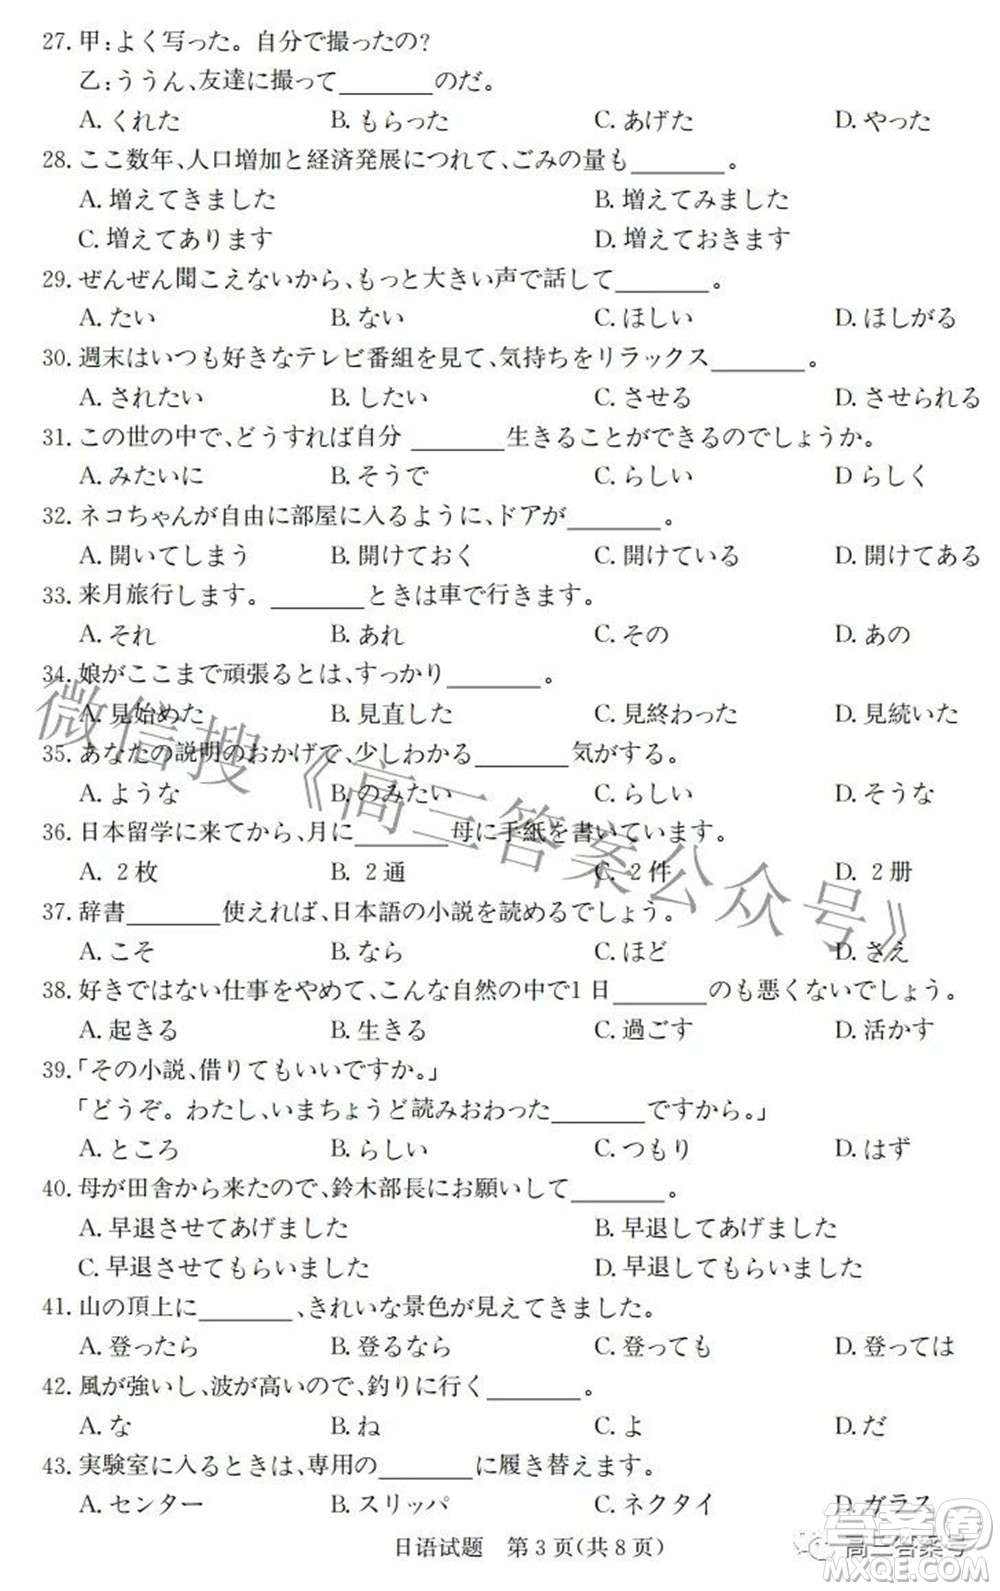 27. 甲:よく写った。自分で撮ったの?
乙:ううん、友達に撮って______のだ。
A. くれた B. もらった C. あげた D. やった
28. ここ数年、人口増加と経済発展につれて、ごみの量も______。
A. 増えてきました B. 増えてみました
C. 増えてあります D. 増えておきます
29. ぜんぜん聞こえないから、もっと大きい声で話して______。
A. たい B. ない C. ほしい D. ほしがる
30. 週末はいつも好きなテレビ番組を見て、気持ちをリラックス______。
A. されたい B. したい C. させる D. させられる
31. この世の中で、どうすれば自分______生きることができるのでしょうか。
A. みたいに B. そうで C. らしい D らしく
32. ネコちゃんが自由に部屋に入るように、ドアが______。
A. 開いてしまう B. 開けておく C. 開けている D. 開けてある
33. 来月旅行します。______ときは車で行きます。
A. それ B. あれ C. その D. あの
34. 娘がここまで頑張るとは、すっかり______。
A. 見始めた B. 見直した C. 見終わった D. 見続いた
35. あなたの説明のおかげで、少しわかる______気がする。
A. ような B. のみたい C. らしい D. そうな
36. 日本留学に来てから、月に______母に手紙を書いています。
A. 2枚 B. 2通 C. 2件 D. 2册
37. 辞書______使えれば、日本語の小説を読めるでしょう。
A. こそ B. なら C. ほど D. さえ
38. 好きではない仕事をやめて、こんな自然の中で1日______のも悪くないでしょう。
A. 起きる B. 生きる C. 過ごす D. 活かす
39. 「その小説、借りてもいいですか。」
「どうぞ。わたし、いまちょうど読みおわった______ですから。」
A. ところ B. らしい C. つもり D. はず
40. 母が田舎から来たので、鈴木部長にお願いして______。
A. 早退させてあげました B. 早退してあげました
C. 早退させてもらいました D. 早退してもらいました
41. 山の頂上に______、きれいな景色が見えてきました。
A. 登ったら B. 登るなら C. 登っても D. 登っては
42. 風が強いし、波が高いので、釣りに行く______。
A. な B. ね C. よ D. だ
43. 実験室に入るときは、専用の______に履き替えます。
A. センター B. スリッパ C. ネクタイ D. ガラス
日语试题 第3页(共8页)
微信搜《高三答案公众号》
高三答案号
答案圈
MXQE.COM